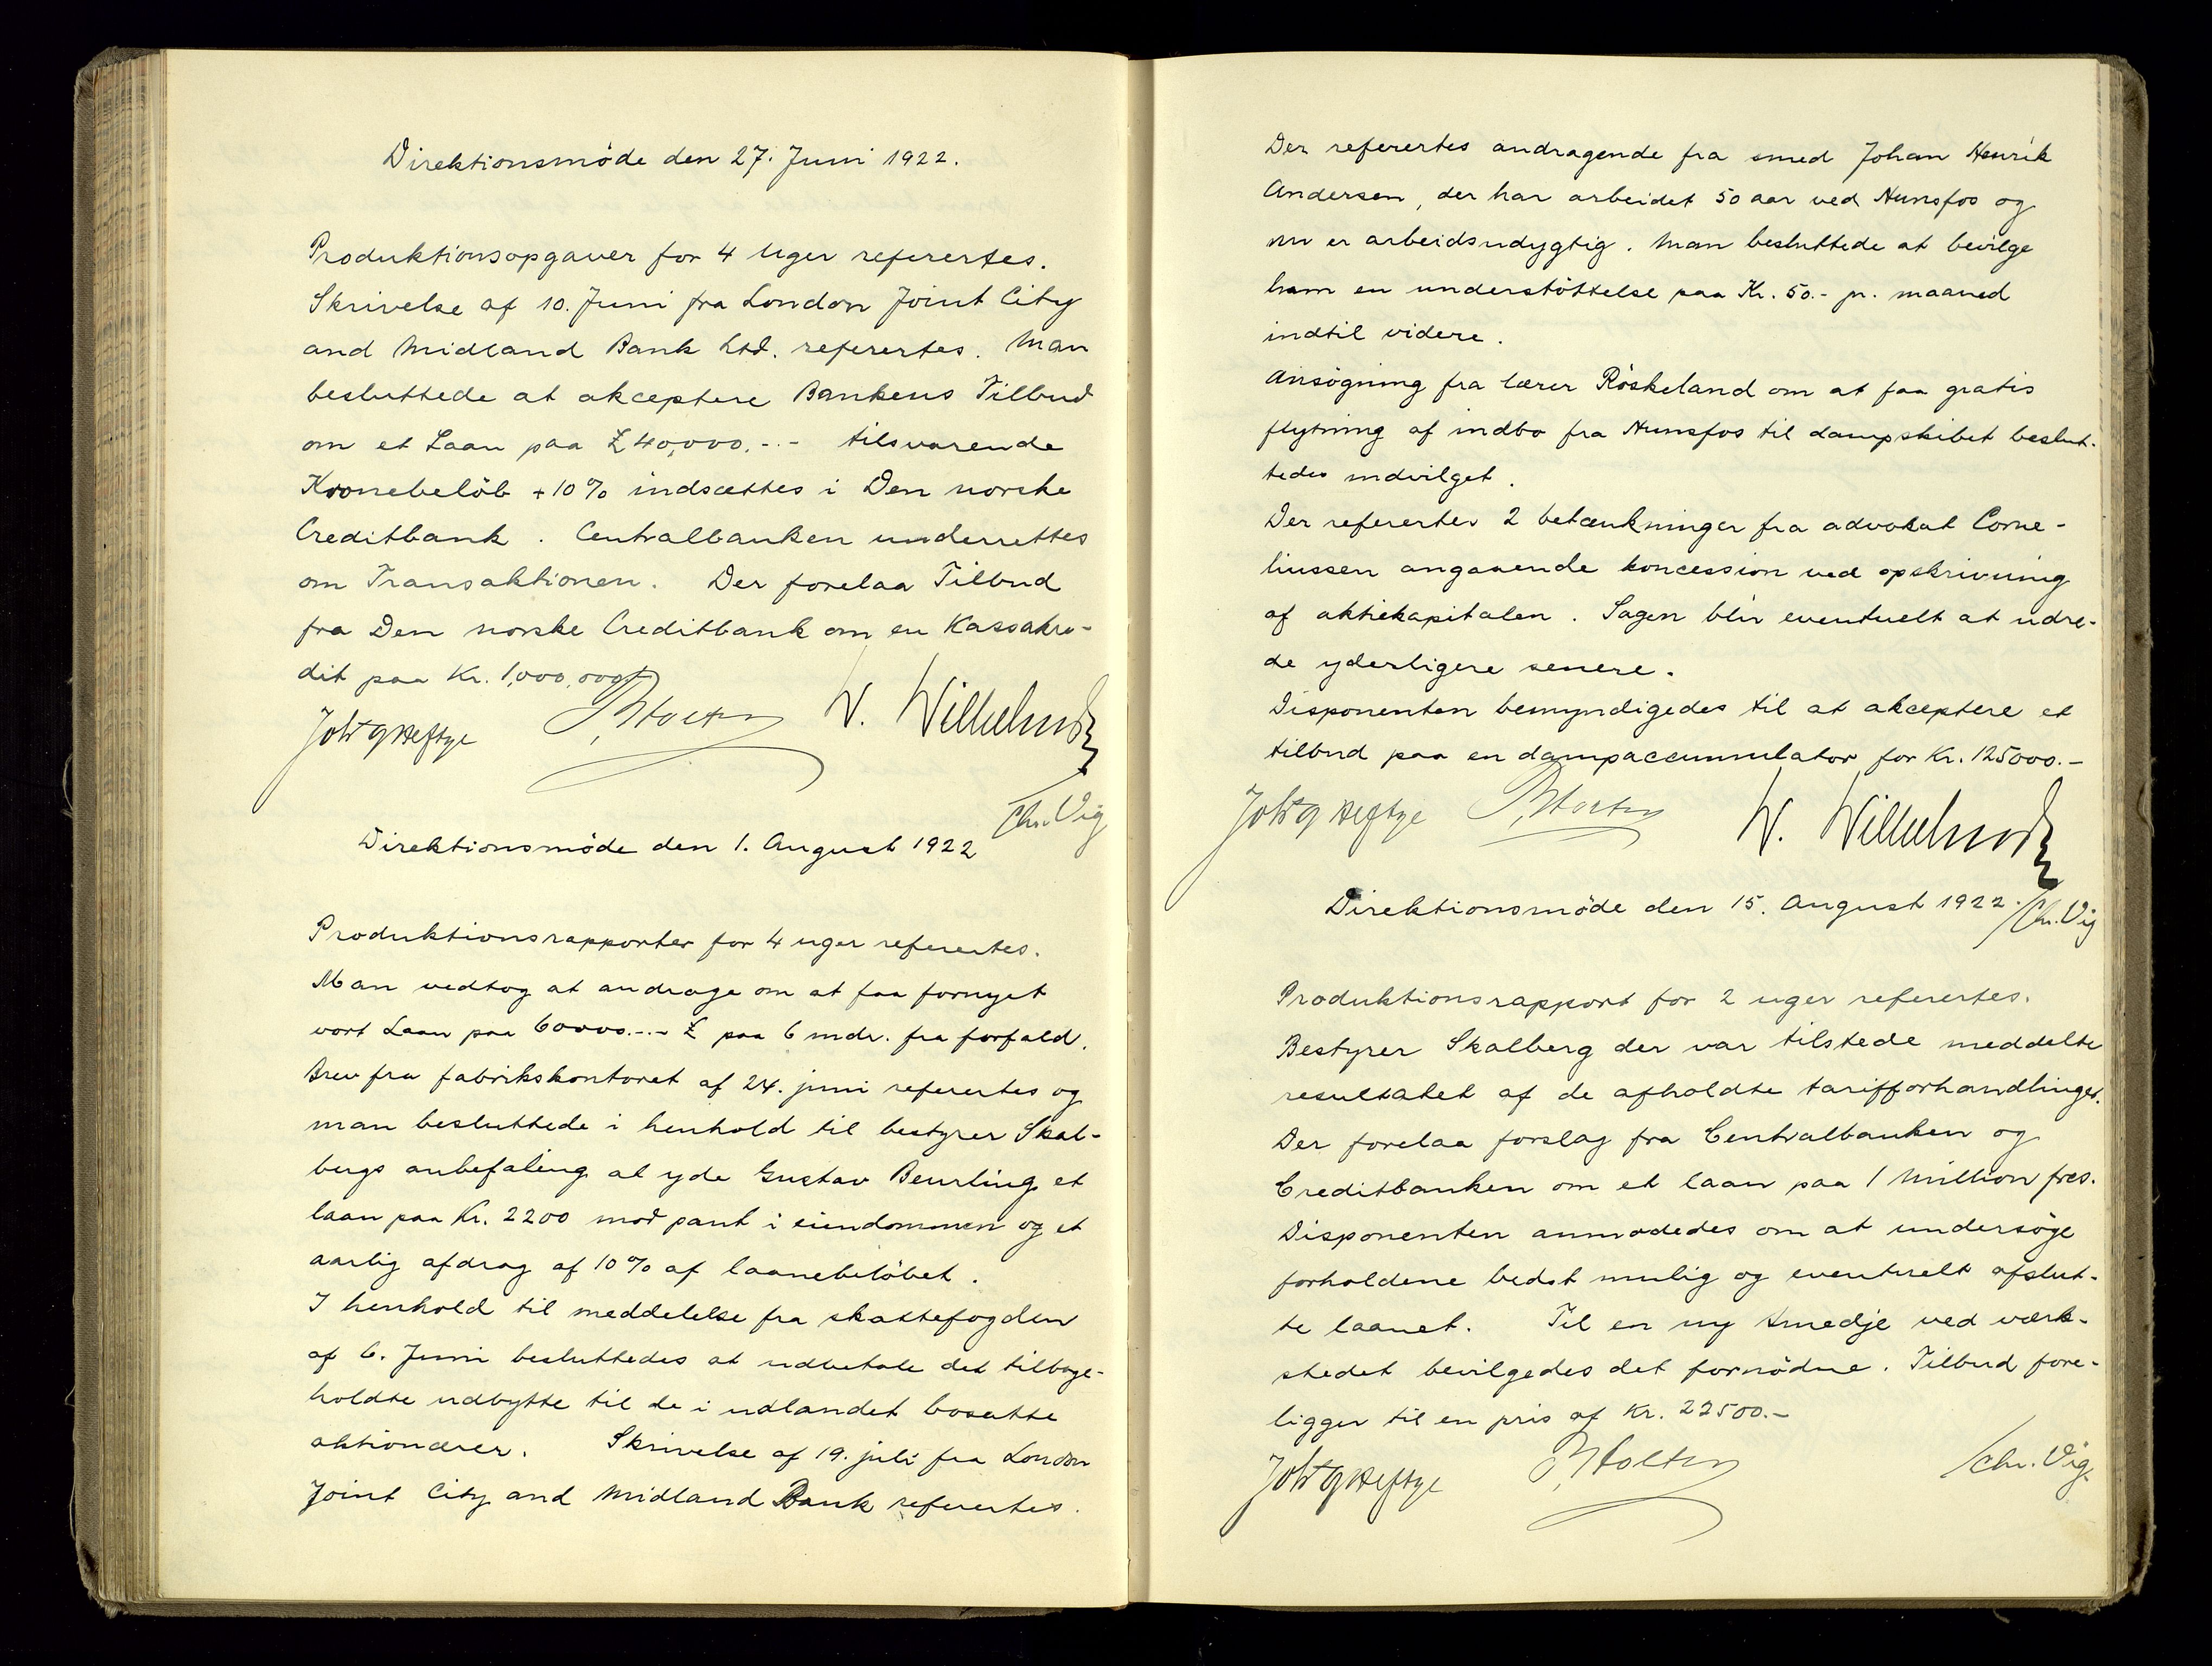 Direktionsmöde den 27. Juni 1922.
Produktionsopgaver for 4 Uger referertes.
Skrivelse af 10. Juni fra London Joint City
and Midland Bank Ltd. referertes. Man
besluttede at akceptere Bankens Tilbud
om et Laan paa £40,000.-.- tilsvarende
Kronebelöb + 10% indsættes i Den norske
Creditbank. Centralbanken underrettes
om Transaktionen. Der forelaa Tilbud
fra Den norske Creditbank om en Kassakre-
dit paa Kr. 1,000,000
Joh T g Heftye P. Holter W. Wilhelmsen
Chr. Vig
Direktionsmöde den 1. August 1922
Produktionsrapporter for 4 uger referertes.
Man vedtog at andrage om at faa fornyet
vort Laan paa 60000.-.- £ paa 6 mdr. fra forfald.
Brev fra fabrikskontoret af 24. juni referertes og
man besluttede i henhold til bestyrer Skal-
bergs anbefaling at yde Gustav Beurling et
laan paa Kr. 2200 mod pant i eiendommen og et
aarlig afdrag af 10% af laanebelöbet.
I henhold til meddelelse fra skattefogden
af 6. Juni besluttedes at udbetale det tilbage-
holdte udbytte til de i udlandet bosatte
aktionærer. Skrivelse af 19. juli fra London
Joint City and Midland Bank referertes.
Der referertes andragende fra smed Johan Henrik
Andersen, der har arbeidet 50 aar ved Hunsfos og
nu er arbeidsudygtig. Man besluttede at bevilge
ham en understöttelse paa Kr. 50.- pr. maaned
indtil videre.
Ansögning fra lærer Röskeland om at faa gratis
flytning af indbo fra Hunsfos til dampskibet beslut-
tedes indvilget.
Der referertes 2 betænkninger fra advokat Corne-
liussen angaaende koncession ved opskrivning
af aktiekapitalen. Sagen blir eventuelt at udre-
de yderligere senere.
Disponenten bemyndigedes til at akceptere et
tilbud paa en dampaccumulator for Kr. 125000.-
Joh T g Heftye P. Holter W. Wilhelmsen
Direktionsmöde den 15. August 1922. Chr. Vig
Produktionsrapport for 2 uger referertes.
Bestyrer Skalberg der var tilstede meddelte
resultatet af de afholdte tarifforhandlinger.
Der forelaa forslag fra Centralbanken og
Creditbanken om et laan paa 1 Million frcs.
Disponenten anmodedes om at undersöge
forholdene bedst mulig og eventuelt afslut-
te laanet. Til en ny Smedje ved værk-
stedet bevilgedes det fornödne. Tilbud fore-
ligger til en pris af Kr. 22500.-
Joh T g Heftye P. Holter Chr. Vig.